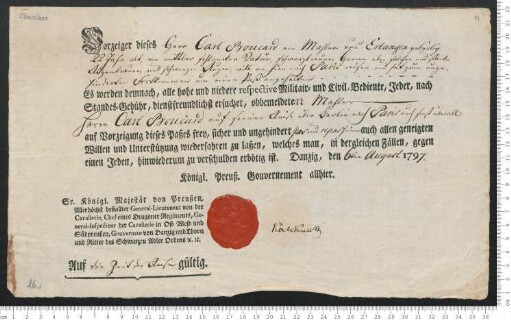 Vorzeiger dieses Herr Carl Boucard ein Mahler von Erlangen gebürtig
22 Jahr alt, von mittler
Es werden demnach, alle hohe und niedere respective Militair- und Civil-Bediente, Jeder, nach
Standes-Gebühr, dienstfreundlich ersuchet, obbemeldeten Mahler
Herrn Carl Boucard auf seiner Reise über Berlin nach Paris
auf Vorzeigung dieses Paßes frey, sicher und ungehindert auch allen geneigten
Willen und Unterstützung wiederfahren zu laßen, welches man, in dergleichen Fällen, gegen
einen Jeden, hinwiederum zu verschulden erbötig ist. Danzig, den 6ten August 1797.
Königl. Preuß. Gouvernement allhier.
Sr. Königl. Majestät von Preußen,
Allerhöchst bestallter General-Lieutenant von der
Cavallerie, Chef eines Dragoner Regiments, Ge-
neral-Inspecteur der Cavallerie in Ost- West- und
Südpreußen, Gouverneur von Danzig und Thorn
und Ritter des Schwarzen Adler Ordens ꝛc. ꝛc.
Auf die Zeit der Reise gültig.